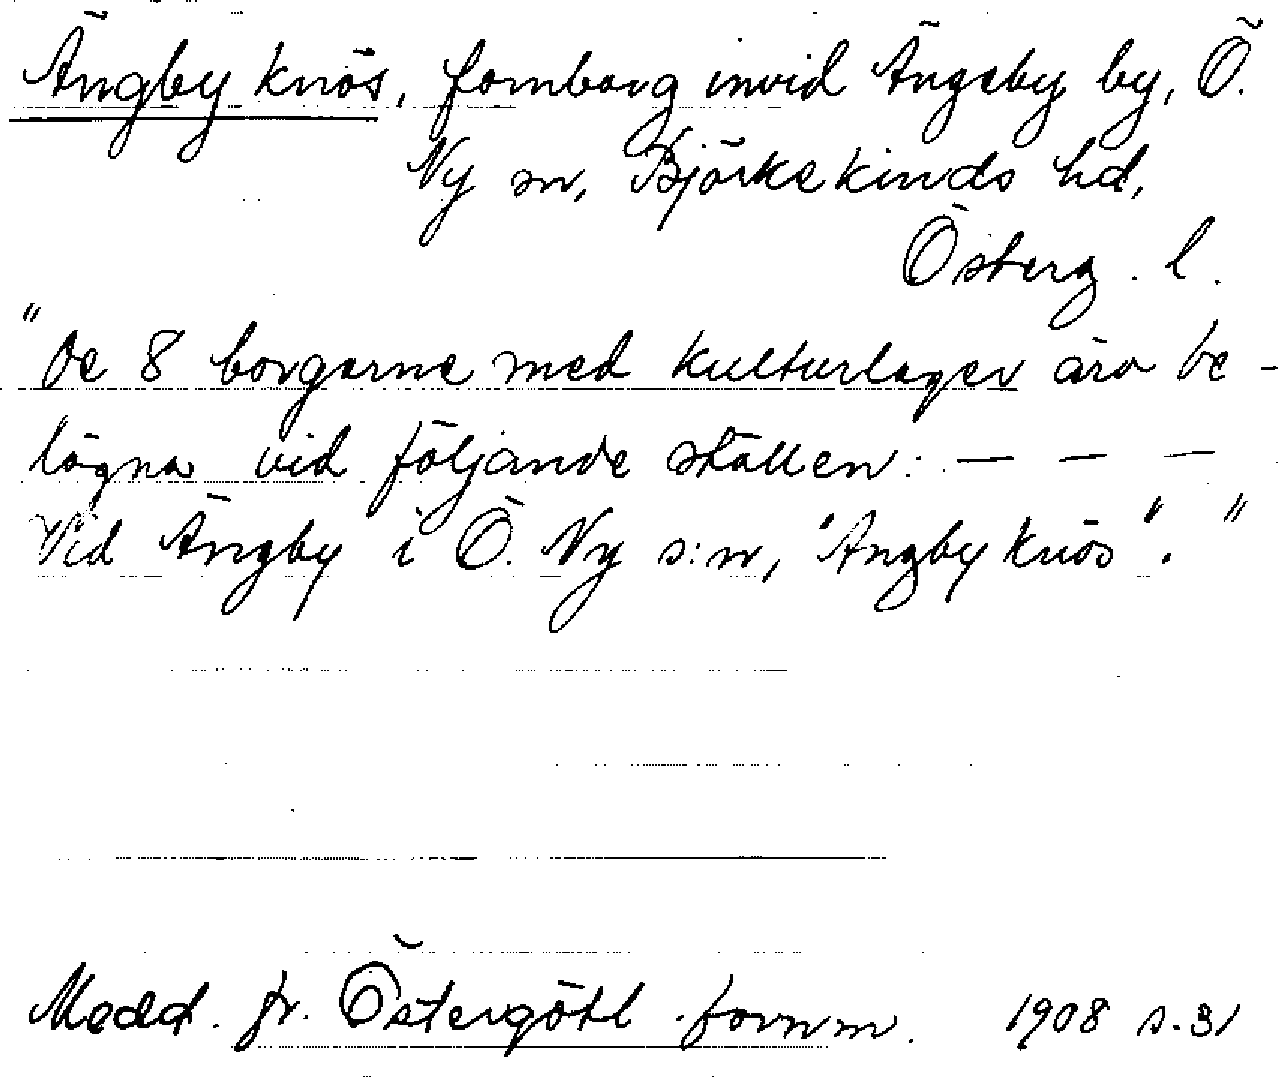 Ängby knös, fornborg invid Ängeby by, Ö.
Ny sn, Björkekinds hd,
Österg. l.
"De 8 borgarne med kulturlager äro be-
lägna vid följande ställen: — — —
Vid Ängby i Ö. Ny s:n, "Ängby knös"."
Medd. fr. Östergötl. fornm. 1908 s. 31